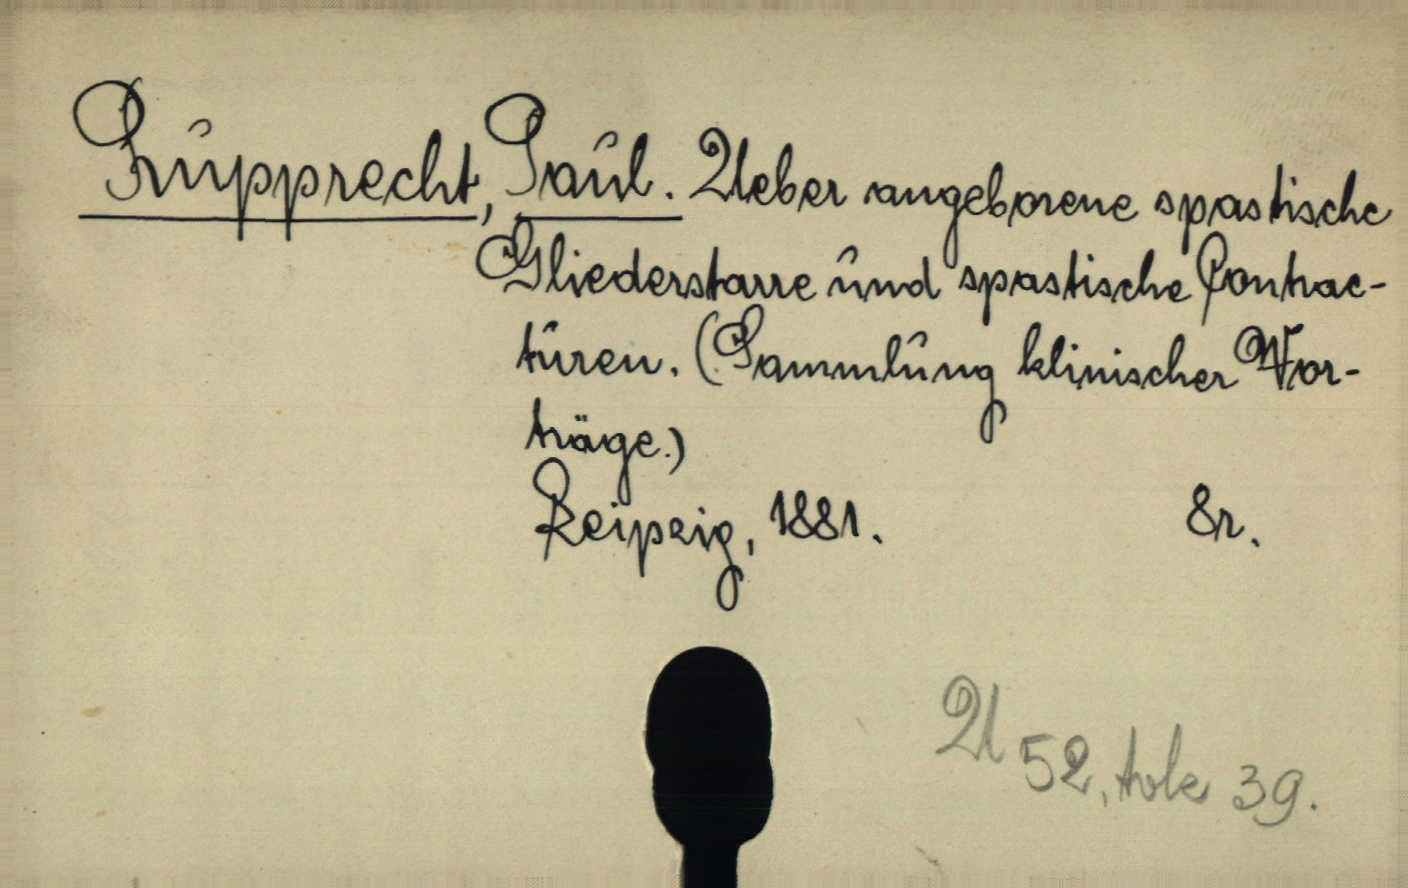 Rupprecht, Paul. Ueber angeborene spastische
Gliederstarre und spastische Contrac-
turen. (Sammlung klinischer Vor-
träge.)
Leipzig, 1881. 8r.
52, tole 39.